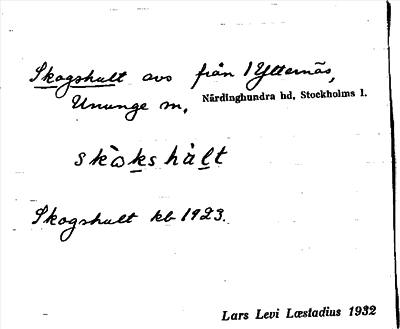 Skogshult avs från 1 Ytternäs,
Ununge sn,
Närdinghundra hd, Stockholms l.
skò̀kshàlt
Skogshult kb 1923.
Lars Levi Læstadius 1932